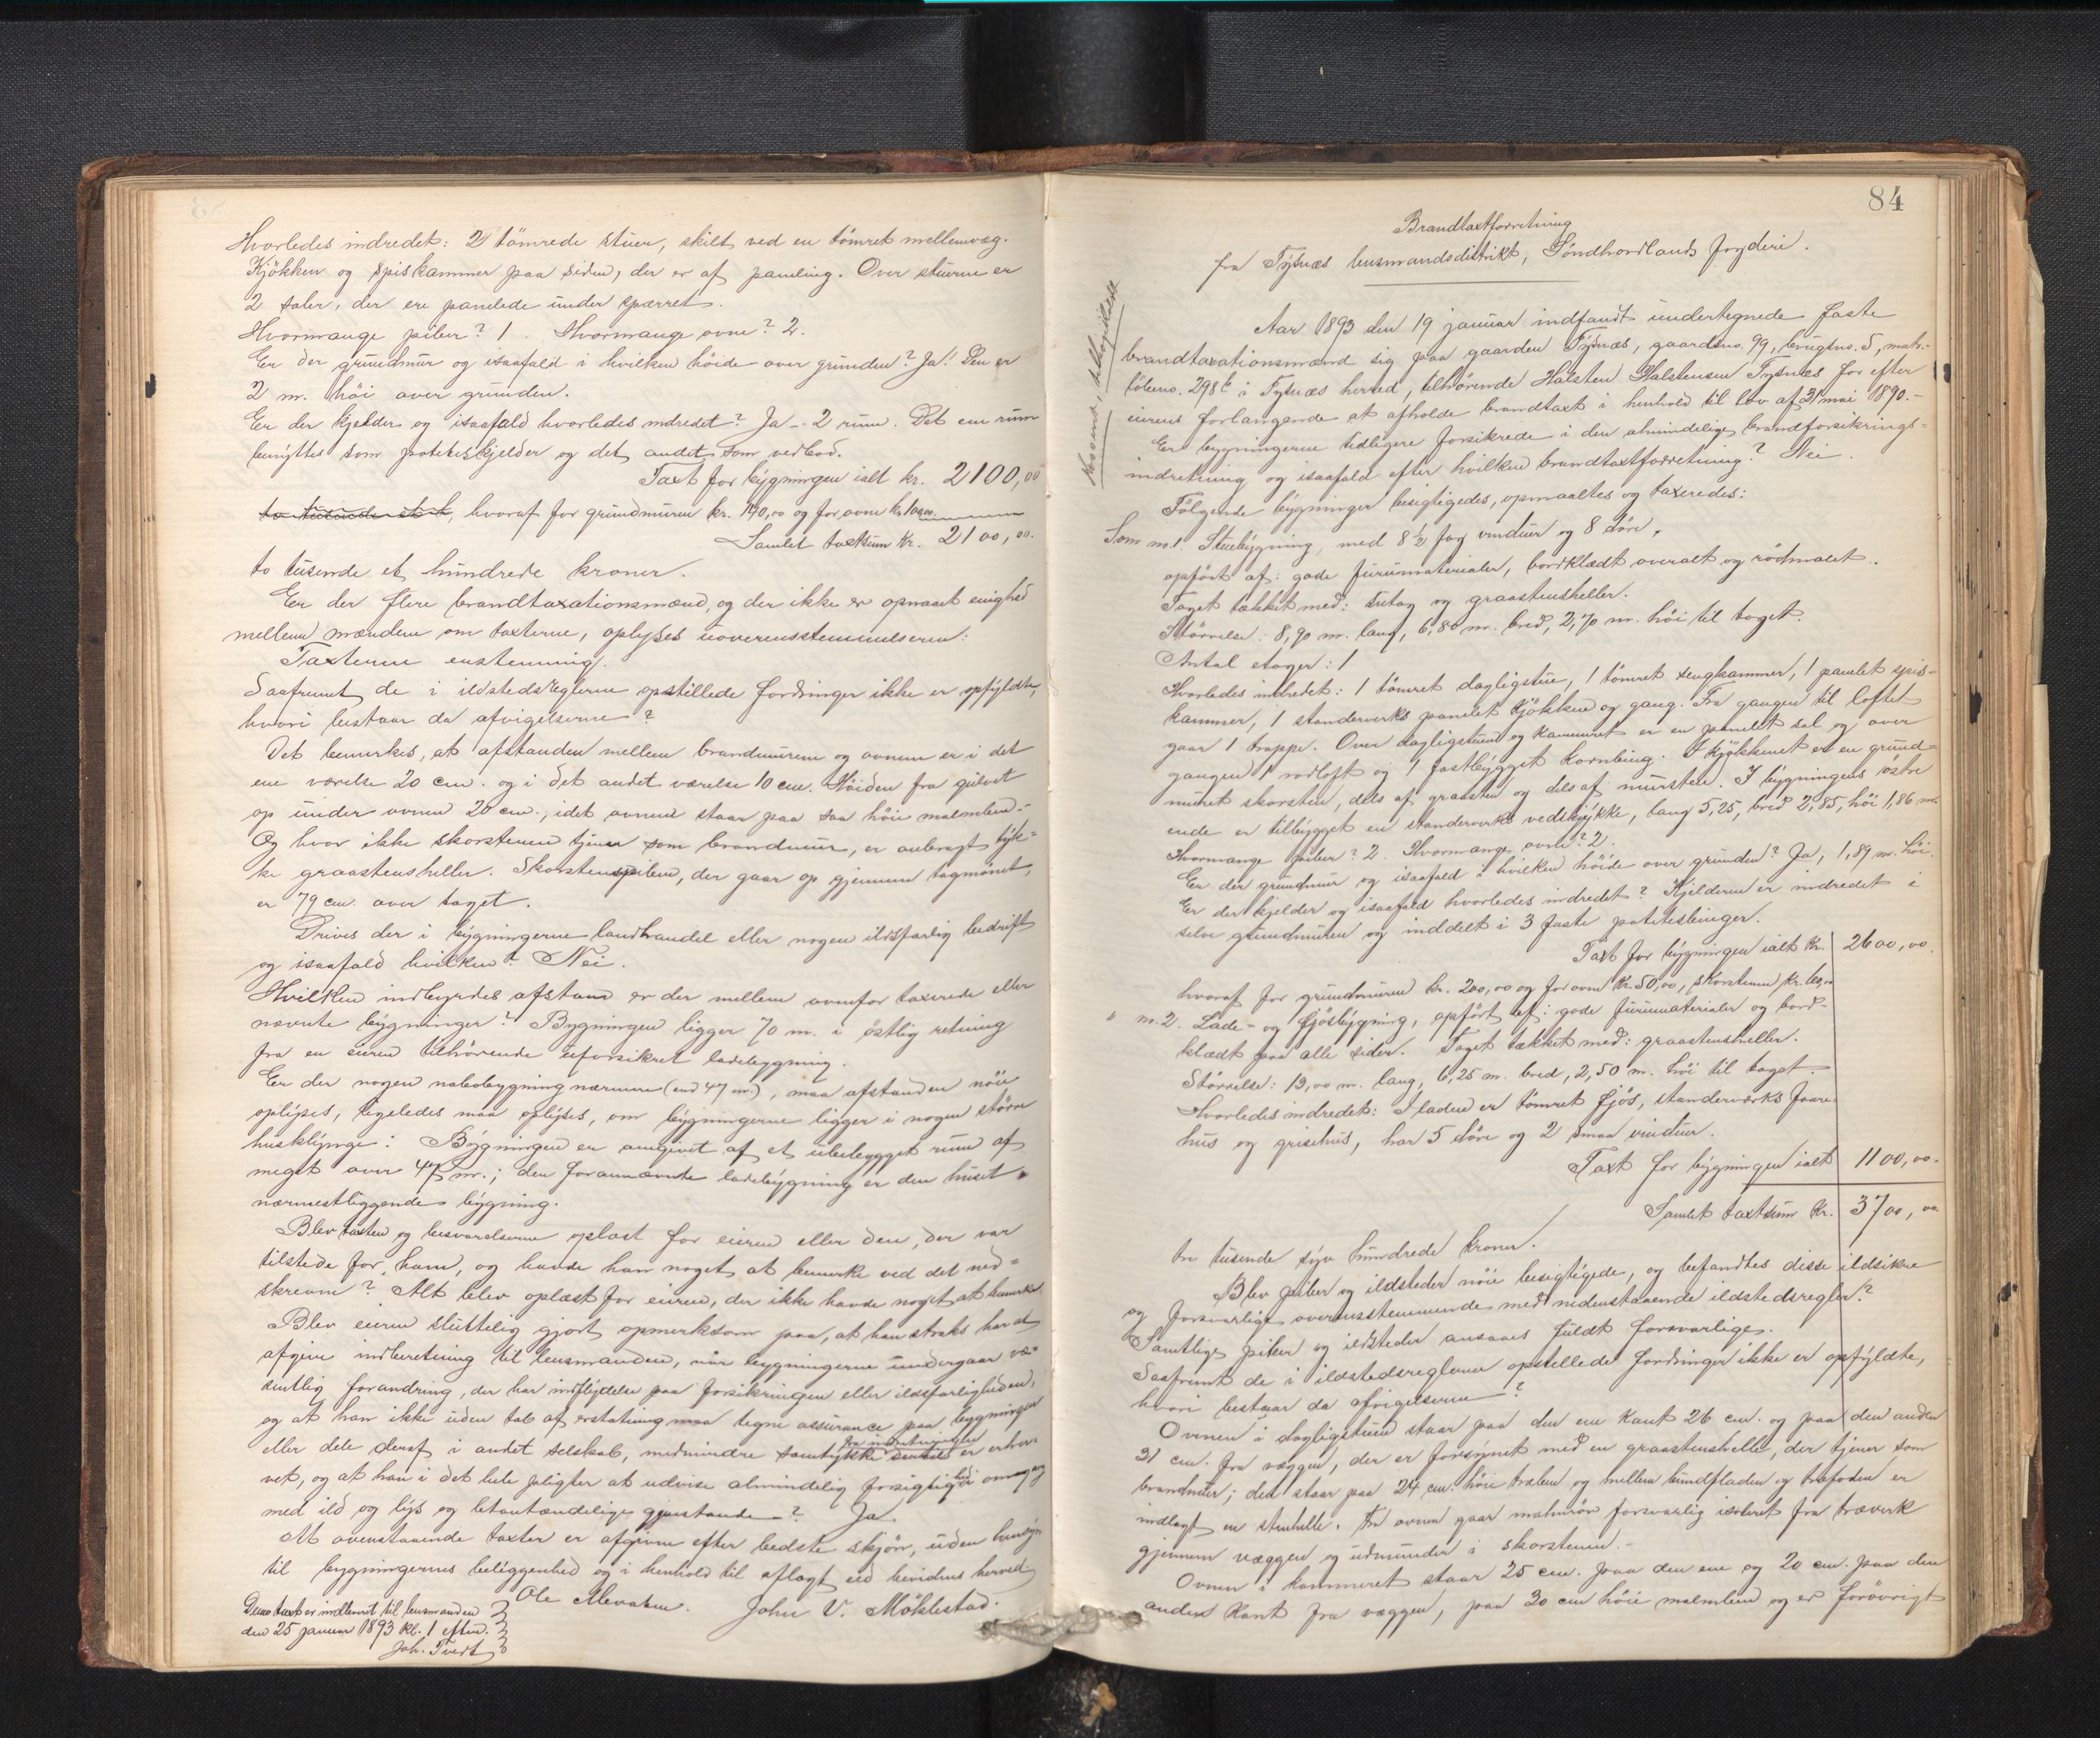 Hvorledes indredet: 2 tömrede stuer, skilt ved en tömret mellemvæg.
Kjökken og spiskammer paa siden, der er af paneling. Over stuerne er
2 saler, der ere panelede under sperret.
Hvormange piber? 1. Hvormange ovne? 2.
Er der grundmur og isaafald i hvilken höide over grunden? Ja! Den er
2 m. höi over grunden.
Er der kjelder og isaafald hvorledes indredet? Ja - 2 rum. Det ene rum
benyttes som poteteskjelder og det andet som vedbod.
Taxt for bygningen ialt kr. 2100,00
hvoraf for grundmuren kr. 140,00 og for ovne kr.
Samlet taxtsum kr. 2100,00.
to tusende et hundrede kroner.
Er der flere brandtaxationsmænd, og der ikke er opnaaet enighed
mellem mændene om taxterne, oplyses uoverensstemmelserne:
Taxterne enstemmig.
Saafremt de i ildstedsreglerne opstillede fordringer ikke er opfyldte,
hvori bestaar da afvigelserne?
Det bemerkes, at afstanden mellem brandmuren og ovnen er i det
ene værelse 20 cm. og i det andet værelse 10 cm. Höiden fra gulvet
op under ovnen 20 cm., idet ovnene staar paa saa höie malmben.-
Og hvor ikke skorstenen tjener som brandmur, er anbragt tyk=
ke graastensheller. Skorstenspiben, der gaar op gjennem tagmönet,
er 79 cm. over taget.
Drives der i bygningerne landhandel eller nogen ildsfarlig bedrift
og isaafald hvilken? Nei.
Hvilken indbyrdes afstand er der mellem ovenfor taxerede eller
nævnte bygninger? Bygningen ligger 70 m. i östlig retning
fra en eieren tilhörende uforsikret ladebygning.
Er der nogen nabobygning nærmere (end 47 m.), maa afstanden nöie
oplyses, ligeledes maa oplyses, om bygningerne ligger i nogen större
husklynge: Bygningen er omgivet af et ubebygget rum af
meget over 47 m.; den forannævnte ladebygning er den huset
nærmestliggende bygning.
Blev taxten og besvarelserne oplæst for eieren eller den, der var
tilstede for ham, og havde han noget at bemerke ved det ned=
skrevne? Alt blev oplæst for eieren, der ikke havde noget at bemerke.
Blev eieren sluttelig gjort opmerksom paa, at han straks har at
afgive indberetning til lensmanden, naar bygningerne undergaar væ=
sentlig forandring, der har indflydelse paa forsikringen eller ildsfarligheden;
og at han ikke uden tab af erstatning maa tegne assurance paa bygningen
eller dele deraf i andet selskab, medmindre samtykke fra indretningen er erhver
vet, og at han i det hele pligter at udvise almindelig forsigtighed i omgang
med ild og lys og letantændelige gjenstande? Ja.
At ovenstaaende taxter er afgivne efter bedste skjön, uden hensyn
til bygningernes beliggenhed og i henhold til aflagt ed bevidnes herved
Ole Mevatne. John V. Möklestad.
Denne taxt er indleveret til lensmanden
den 25 januar 1893 kl. 1 efterm.
Joh. Tvedt
84
Brandtaxtforretning
fra Tysnæs lensmandsdistrikt, Söndhordlands fogderi.
Aar 1893 den 19 januar indfandt undertegnede faste
brandtaxationsmænd sig paa gaarden Tysnæs, gaardsno. 99, brugsno. 5, matr.-
löbeno. 298c i Tysnæs herred, tilhörende Halsten Halstensen Tysnæs for efter
eierens forlangende at afholde brandtaxt i henhold til lov af 31 mai 1890.-
Er bygningerne tidligere forsikrede i den almindelige brandforsikrings=
indretning og isaafald efter hvilken brandtaxtforretning? Nei.
Fölgende bygninger besigtigedes, opmaaltes og taxeredes:
Som no. 1. Stuebygning, med 8½ fag vinduer og 8 döre,
opfört af: gode furumaterialer, bordklædt overalt og rödmalet.
Taget tækket med: og graastensheller.
Störrelse: 8,90 m. lang, 6,80 m. bred, 2,70 m. höi til taget.
Antal etager: 1
Hvorledes indredet: 1 tömret dagligstue, 1 tömret sengkammer, 1 panelet spis-
kammer, 1 standerverks panelet kjökken og gang. Fra gangen til loftet
gaar 1 trappe. Over dagligstuen og kammeret er en panelet sal og over
gangen 1 rodloft og 1 fastbygget kornbing. I kjökkenet er en grund
muret skorsten, dels af graasten og dels af mursten. I bygningens östre
ende er tilbygget en standerverks vedskykke, lang 5,25, bred 2,85, höi 1,86 m.
Hvormange piber? 2. Hvormange ovne? 2.
Er der grundmur og isaafald i hvilken höide over grunden? Ja, 1,89 m. höi.
Er der kjelder og isaafald hvorledes indredet? Kjelderen er indredet i
selve grundmuren og inddelt i 3 faste potetesbinger.
Taxt for bygningen ialt kr. 2600,00.
hvoraf for grundmuren kr. 200,00 og for ovne kr. 50,00, skorstenen kr.
" no. 2. Lade- og fjösbygning, opfört af: gode furumaterialer og bord-
klædt paa alle sider. Taget tækket med: graastensheller.
Störrelse: 13,00 m. lang, 6,25 m. bred, 2,50 m. höi til taget.
Hvorledes indredet: I laden er tömret fjös, standerværks faare-
hus og grisehus, har 5 döre og 2 smaa vinduer.
Taxt for bygningen ialt 1100,00.
Samlet taxtsum kr. 3700,00
tre tusende syv hundrede kroner.
Blev piber og ildsteder nöie besigtigede, og befandtes disse ildsikre
og forsvarlige overensstemmende med nedenstaaende ildstedsregler?
Samtlige piber og ildsteder ansaaes fuldt forsvarlige.
Saafremt de i ildstedsreglerne opstillede fordringer ikke er opfyldte,
hvori bestaar da afvigelserne?
Ovnen i dagligstuen staar paa den ene kant 26 cm. og paa den anden
31 cm. fra væggen, der er forsynet med en graastenshelle, der tjener som
brandmur; den staar paa 24 cm. höie træben og mellem bundfladen og træfoden er
indlagt en stenhelle. Fra ovnen gaar malmrör forsvarlig isoleret fra træverk
gjennem væggen og udmunder i skorstenen.-
Ovnen i kammeret staar 25 cm. paa den ene og 20 cm. paa den
anden kant fra væggen, paa 30 cm höie malmben og er forövrigt